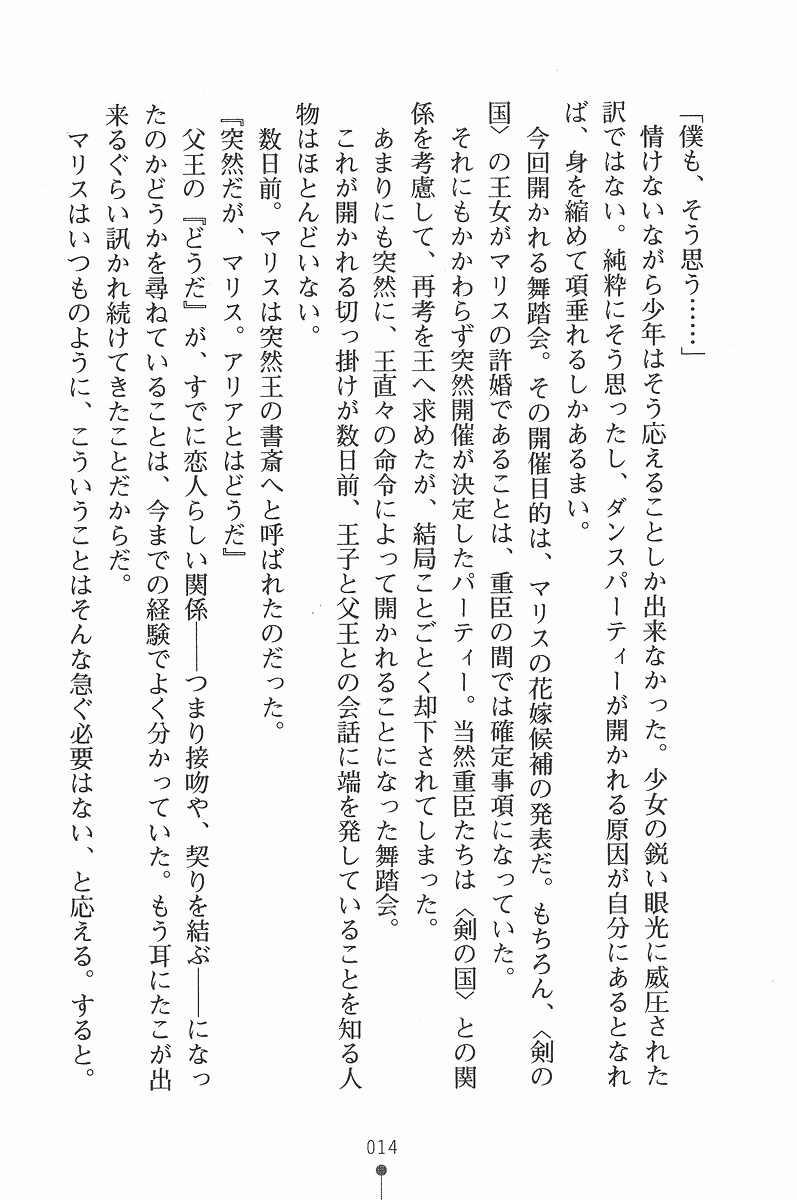 「僕も、そう思う……」
　情けないながら少年はそう応えることしか出来なかった。少女の鋭い眼光に威圧された
訳ではない。純粋にそう思ったし、ダンスパーティーが開かれる原因が自分にあるとなれ
ば、身を縮めて項垂れるしかあるまい。
　今回開かれる舞踏会。その開催目的は、マリスの花嫁候補の発表だ。もちろん、〈剣の
国〉の王女がマリスの許婚であることは、重臣の間では確定事項になっていた。
　それにもかかわらず突然開催が決定したパーティー。当然重臣たちは〈剣の国〉との関
係を考慮して、再考を王へ求めたが、結局ことごとく却下されてしまった。
　あまりにも突然に、王直々の命令によって開かれることになった舞踏会。
　これが開かれる切っ掛けが数日前、王子と父王との会話に端を発していることを知る人
物はほとんどいない。
　数日前。マリスは突然王の書斎へと呼ばれたのだった。
『突然だが、マリス。アリアとはどうだ』
　父王の『どうだ』が、すでに恋人らしい関係――つまり接吻や、契りを結ぶ――になっ
たのかどうかを尋ねていることは、今までの経験でよく分かっていた。もう耳にたこが出
来るぐらい訊かれ続けてきたことだからだ。
　マリスはいつものように、こういうことはそんな急ぐ必要はない、と応える。すると。
014